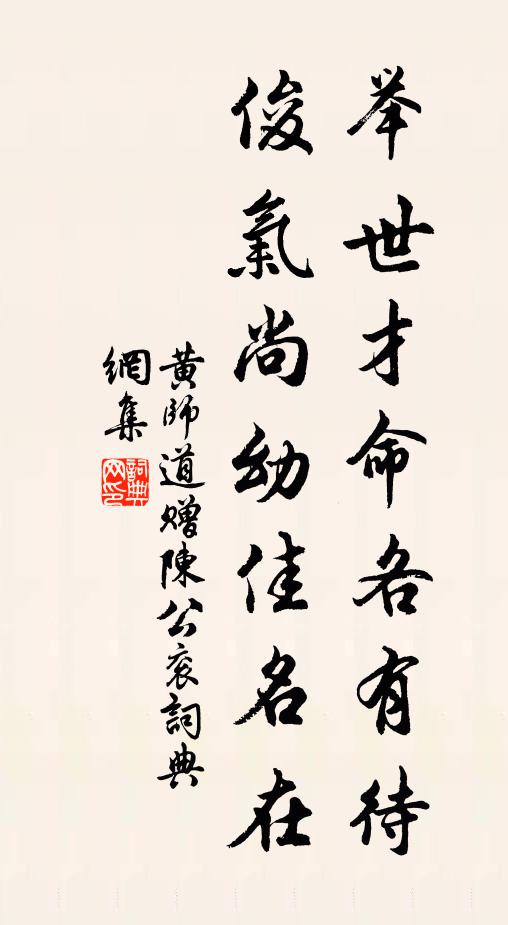 举世才命各有待
俊氣尚幼佳名在
黄師道赠陳公衮詞典
網集
詞典網印